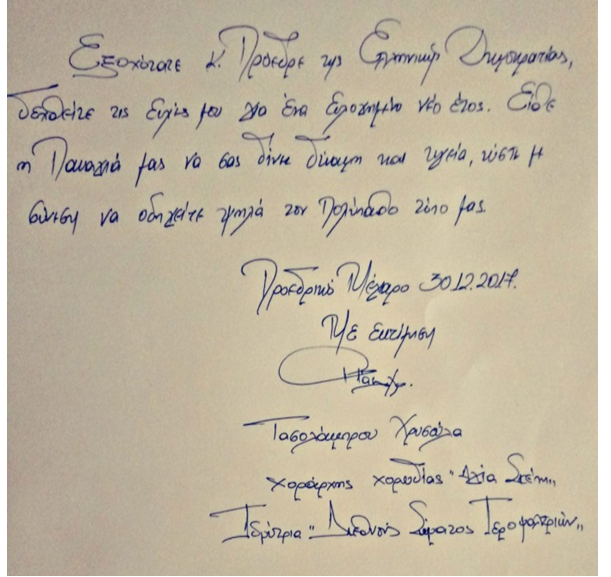 Εξοχότατε κ. Πρόεδρε της Ελληνικής Δημοκρατίας,
δεχθείτε τις ευχές μου για ένα ευλογημένο νέο έτος. Είθε
η Παναγιά μας να σας δίνει δύναμη και υγεία, ώστε με
σύνεση να οδηγείτε ψηλά τον Πολύπαθο τόπο μας.
Προεδρικό Μέγαρο 30.12.2017.
Με εκτίμηση
Τασολάμπρου Χρυσούλα
χοράρχης χορωδίας "Αγία Σκέπη"
Ιδρύτρια "Διεθνούς Σώματος Ιεροψαλτριών"